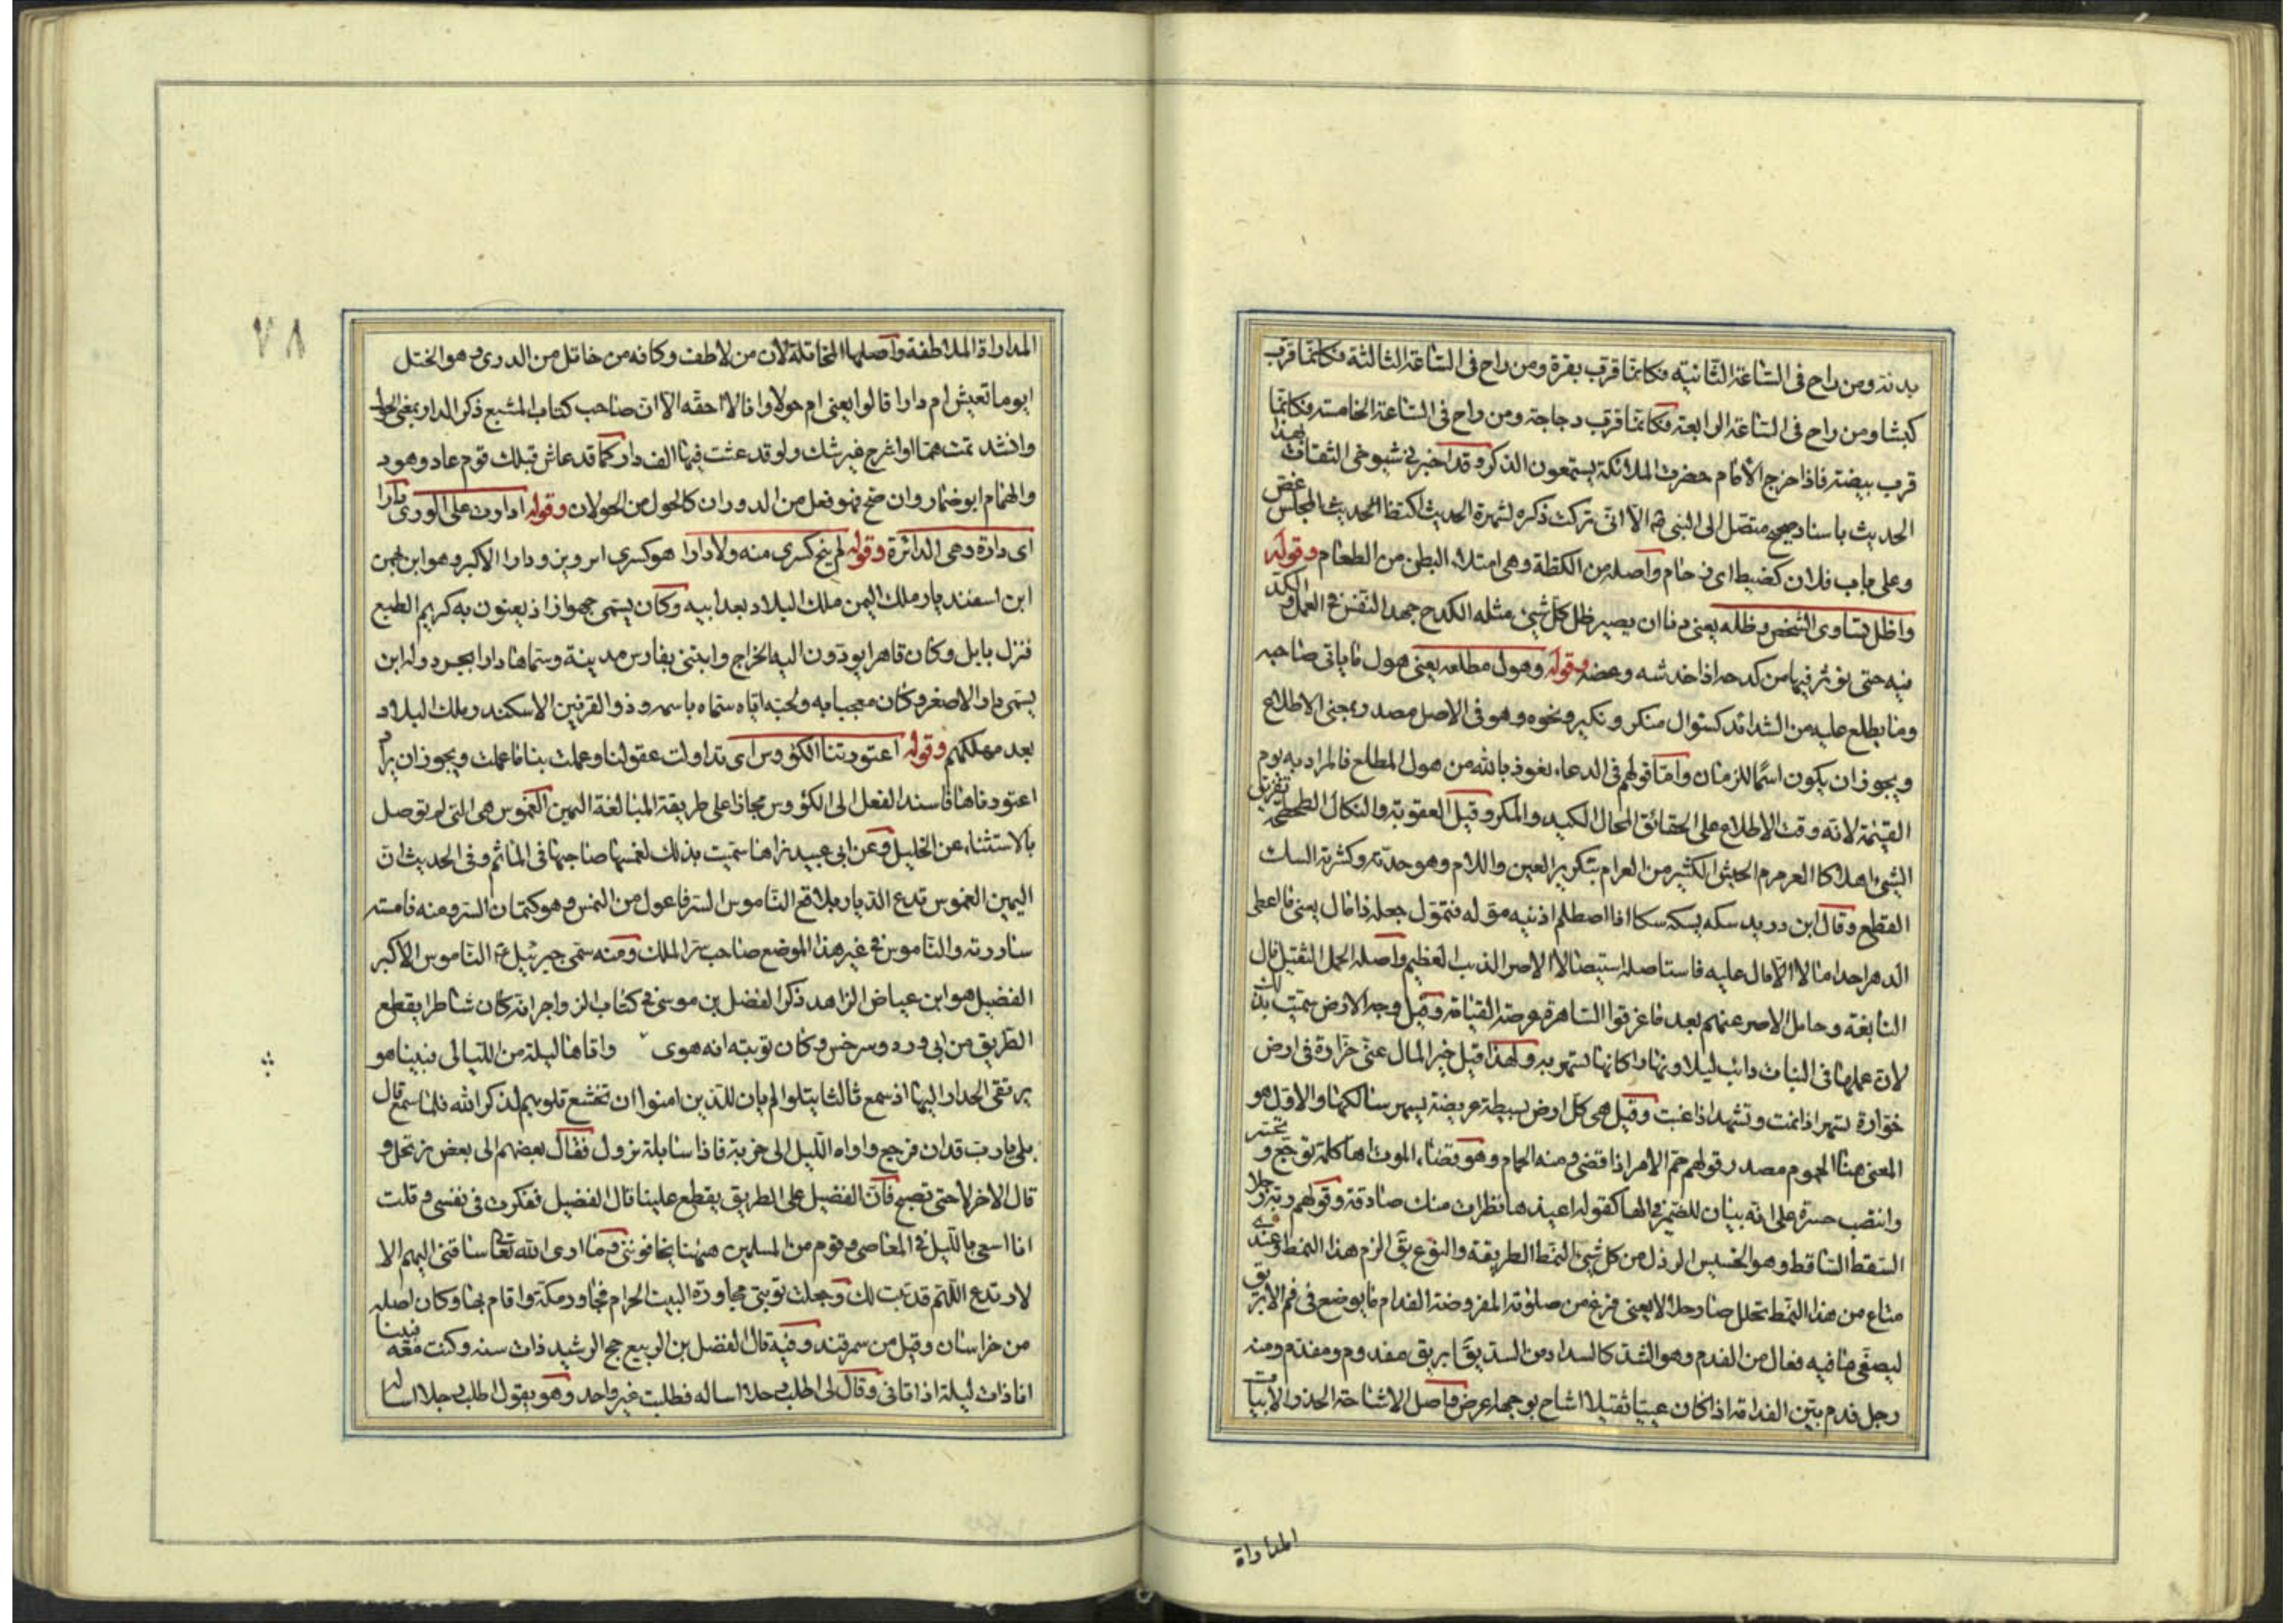 بدنة ومن راح فى الساعة الثانية فكانما قرب بقرة ومن راح فى الساعة الثالثة فكانما قرب
كبشا ومن راح فى الساعة الرابعة فكانما قرب دجاجة ومن راح فى الساعة الخامسة فكانما
قرب بيضة فاذا خرج الامام حضرت الملائكة يستمعون الذكر وقد اخبرنى شيوخى الثقات بهذا
الحديث باسناد صحيح متصل الى النبى الا انى تركت ذكره لشهرة الحديث اكتظا الحديث المجلس غص
وعلى باب فلان كضيظ اى زحام واصله من الكظة وهى امتلاء البطن من الطعام وقوله
واظل تساوى الشخص وظله يعنى دنا ان يصير ظل كل شىء مثله الكدح جهد النفس فى العمل والكد
فيه حتى يؤثر فيها من كدحه اذا خدشه وعضه وقوله وهول مطلعه يعنى هول ما ياتى صاحبه
وما يطلع عليه من الشدائد كسؤال منكر ونكير ونحوه وهو فى الاصل مصدر بمعنى الاطلاع
ويجوز ان يكون اسما للزمان واما قولهم فى الدعاء نعوذ بالله من هول المطلع فالمراد به يوم
القيمة لانه وقت الاطلاع على الحقائق المحال الكيد والمكر وقيل العقوبة والنكال الطحطحة تفريق
الشىء اهلاكا العرمرم الجيش الكثير من العرام بتكرير العين واللام وهو حدته وكثرته السك
القطع وقال ابن دريد سكه يسكه سكا اذا اصطلم اذنيه موّله فتموّل جعله ذا مال يعنى ما اعطى
الدهر احدا مالا الا مال عليه فاستاصله استيصالا الاصر الذنب العظيم واصله الحمل الثقيل قال
النابغة وحامل الاصر عنهم بعد ما غرقوا الساهرة عرصة القيامة وقيل وجه الارض سميت بذلك
لان عملها فى النبات دائب ليلا ونهارا كانها تسهر به ولهذا قيل خير المال عين خرارة فى ارض
خوارة تسهر اذا نمت وتشهد اذا غبت وقيل هى كل ارض بسيطة عريضة يسهر سالكها والاول هو
المعنى هنا الحموم مصدر قولهم حم الامر اذا قضى ومنه الحمام وهو قضاء الموت اها كلمة توجع وتحسر
وانتصب حسرة على انه بيان للضمير فى الها كقوله اعيذها نظرات منك صادقة وقولهم ربه رجلا
السقط الساقط وهو الخسيس الرذل من كل شىء النمط الطريقة والنوع يق الزم هذا النمط وعندى
متاع من هذا النمط تحلل صار حلالا يعنى فرغ من صلوته المفروضة الفدام ما يوضع فى فم الابريق
ليصفى ما فيه فعال من الفدم وهو الشد كالسداد من السد يق ابريق مفدوم ومفدم ومنه
رجل فدم بين الفدامة اذا كان عييا ثقيلا اشاح بوجهه اعرض واصل الاشاحة الحذر الابيات
المداراة
٧٨
المداراة الملاطفة واصلها المخاتلة لان من لاطف وكانه من خاتل من الدرى وهو الختل
ابوها تعيش ام دارا قالوا يعنى ام حولا وانا لا احقه الا ان صاحب كتاب المشبع ذكر الدار بمعنى الحول
وانشد غير شك ولو قد عشت فيها الف دار كما قد عاش قبلك قوم عاد وهود
والهمام وان صح فهو فعل من الدوران كالحول من الحولان وقوله ادارت على الورى دارا
اى دارة وهى الدائرة وقوله لم ينج كسرى منه ولا دارا هو كسرى ابرويز ودارا الاكبر وهو ابن بهمن
ابن اسفنديار ملك اليمن ملك البلاد بعد ابيه وكان يسمى جهرازاد يعنون به كريم الطبع
فنزل بابل وكان قاهرا يودون اليه الخراج وابتنى بفارس مدينة وسماها دارابجرد وله ابن
يسمى دارا الاصغر وكان معجبا به ولحبه اياه سماه باسمه وذو القرنين الاسكندر ملك البلاد
بعد مهلكهم وقوله اعتورتنا الكؤوس اى تداولت عقولنا وعملت بنا ما عملت ويجوز ان يراد
اعتورناها فاسند الفعل الى الكؤوس مجازا على طريقة المبالغة اليمين الغموس هى التى لم توصل
بالاستثناء عن الخليل وعن ابى عبيدة انها سميت بذلك لغمسها صاحبها فى الماثم وفى الحديث ان
اليمين الغموس تدع الديار بلاقع الناموس السر فاعول من النمس وهو كتمان السر ومنه نامسته
ساررته والناموس فى غير هذا الموضع صاحب سر الملك ومنه سمى جبرئيل ع الناموس الاكبر
الفضيل هو ابن عياض الزاهد ذكر الفضل بن موسى فى كتاب الزواجر انه كان شاطرا يقطع
الطريق من ابيورد وسرخس وكان توبته انه هوى واتاها ليلة من الليالى فبينا هو
يرتقى الجدار اليها اذ سمع تاليا يتلوا الم يان للذين امنوا ان تخشع قلوبهم لذكر الله فلما سمع قال
بلى يا رب قد ان فرجع واواه الليل الى خربة فاذا سابلة نزول فقال بعضهم الى بعض نرتحل و
قال الاخر لا حتى نصبح فان الفضيل على الطريق يقطع علينا قال الفضيل ففكرت فى نفسى وقلت
انا اسعى بالليل فى المعاصى وقوم من المسلمين ههنا يخافوننى وما ارى الله تعالى ساقنى اليهم الا
لارتدع اللهم قد تبت لك وجعلت توبتى مجاورة البيت الحرام فجاور مكة واقام بها وكان اصله
من خراسان وقيل من سمرقند وفيه قال الفضل بن الربيع حج الرشيد ذات سنه وكنت معه فبينا
انا ذات ليلة اذ اتانى وقال لى اطلب رجلا اساله فطلبت غير واحد وهو يقول اطلب رجلا اساله